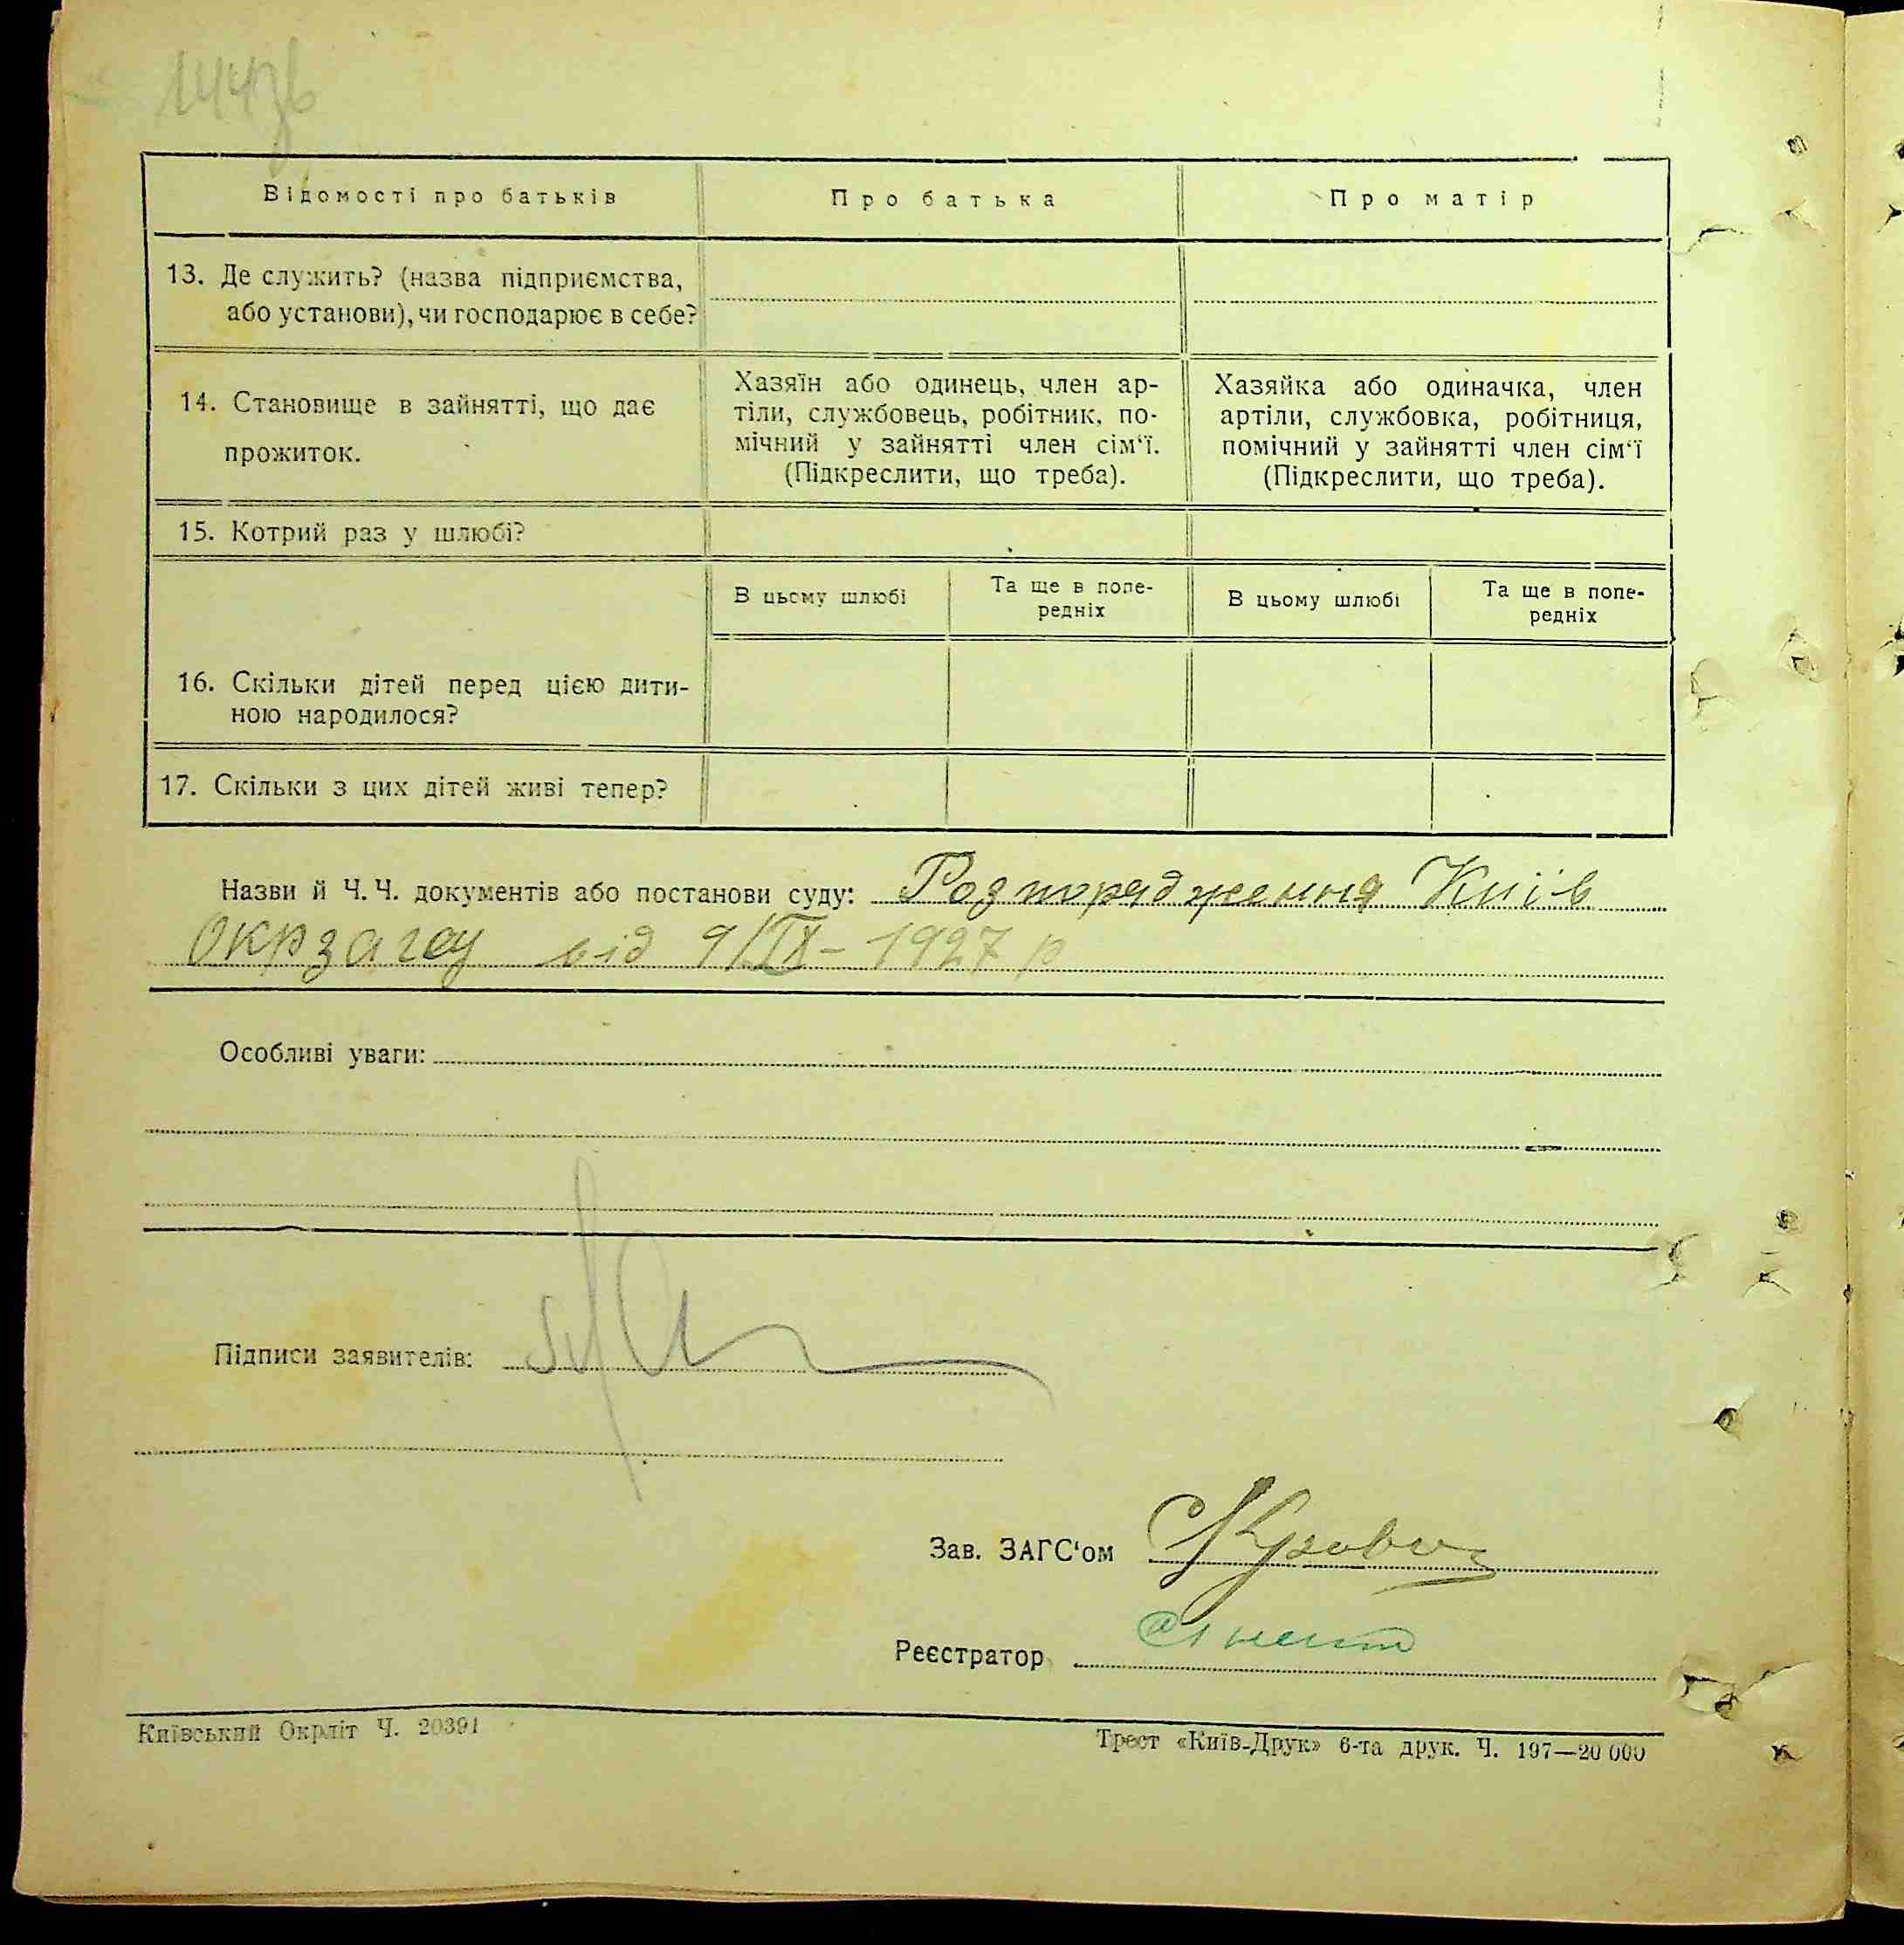 144зв
Відомості про батьків
Про батька
Про матір
13. Де служить? (назва підприємства,
або установи), чи господарює в себе?
14. Становище в зайнятті, що дає
прожиток.
Хазяїн або одинець, член ар-
тіли, службовець, робітник, по-
мічний у зайнятті член сім‘ї.
(Підкреслити, що треба).
Хазяйка або одиначка, член
артіли, службовка, робітниця,
помічний у зайнятті член сім‘ї
(Підкреслити, що треба).
15. Котрий раз у шлюбі?
В цьому шлюбі
Та ще в попе-
редніх
В цьому шлюбі
Та ще в попе-
редніх
16. Скільки дітей перед цією дити-
ною народилося?
17. Скільки з цих дітей живі тепер?
Назви й Ч. Ч. документів або постанови суду: Розпорядження Київ
Окрзагсу від 9/IX - 1927 р
Особливі уваги:
Підписи заявителів:
Зав. ЗАГС‘ом
Реєстратор
Київський Окрліт Ч. 20391
Трест «Київ-Друк» 6-та друк. Ч. 197—20 000